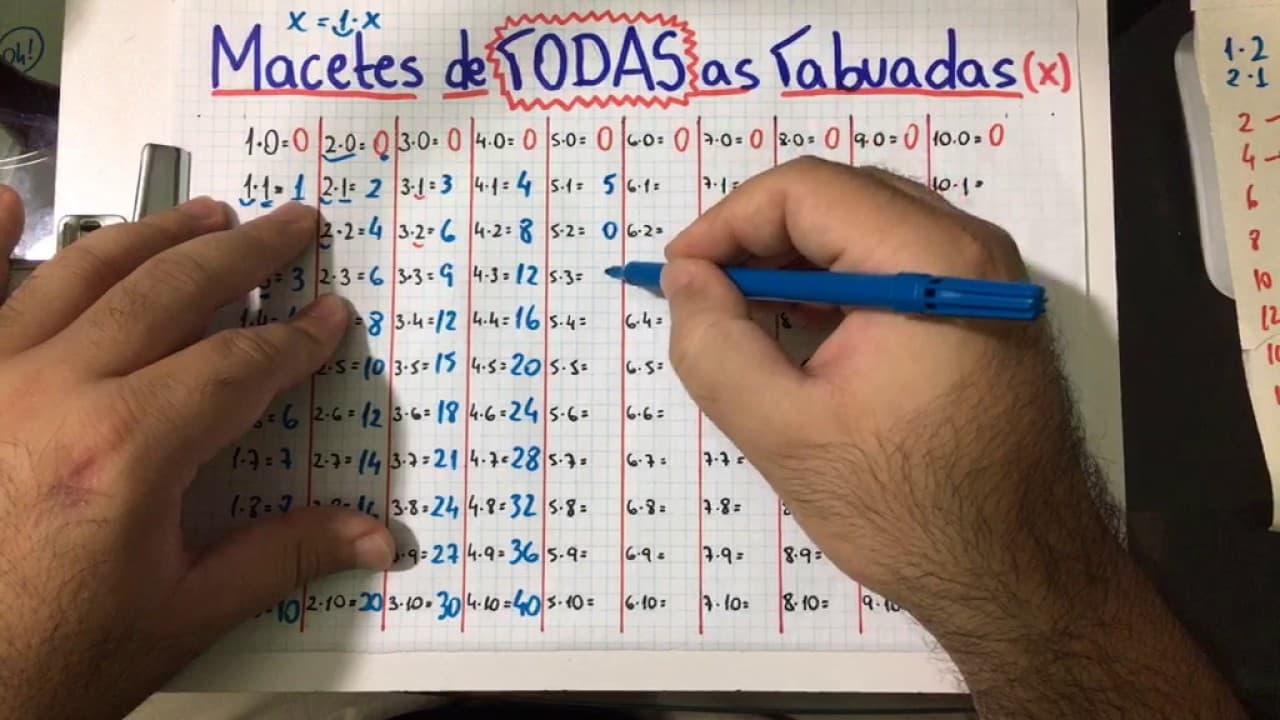 x = 1·x
Oh!
Macetes de TODAS as Tabuadas (x)
1·0=0 2·0=0 3·0=0 4·0=0 5·0=0 6·0=0 7·0=0 8·0=0 9·0=0 10·0=0
1·1=1 2·1=2 3·1=3 4·1=4 5·1= 5 6·1= 7·1= 10·1=
2·2=4 3·2=6 4·2=8 5·2= 0 6·2=
= 3 2·3=6 3·3=9 4·3=12 5·3=
1·4= =8 3·4=12 4·4=16 5·4= 6·4= 8
2·5=10 3·5=15 4·5=20 5·5= 6·5=
= 6 2·6=12 3·6=18 4·6=24 5·6= 6·6=
1·7=7 2·7=14 3·7=21 4·7=28 5·7= 6·7= 7·7=
1·8= 3·8=24 4·8=32 5·8= 6·8= 7·8=
·9=27 4·9=36 5·9= 6·9= 7·9= 8·9=
10 2·10=20 3·10=30 4·10=40 5·10= 6·10= 7·10= 8·10= 9·10
1·2
2·1
2
4
6
8
10
12